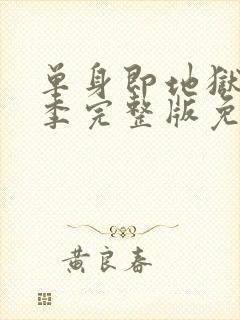 單身即地獄
季完整版免
黄良春